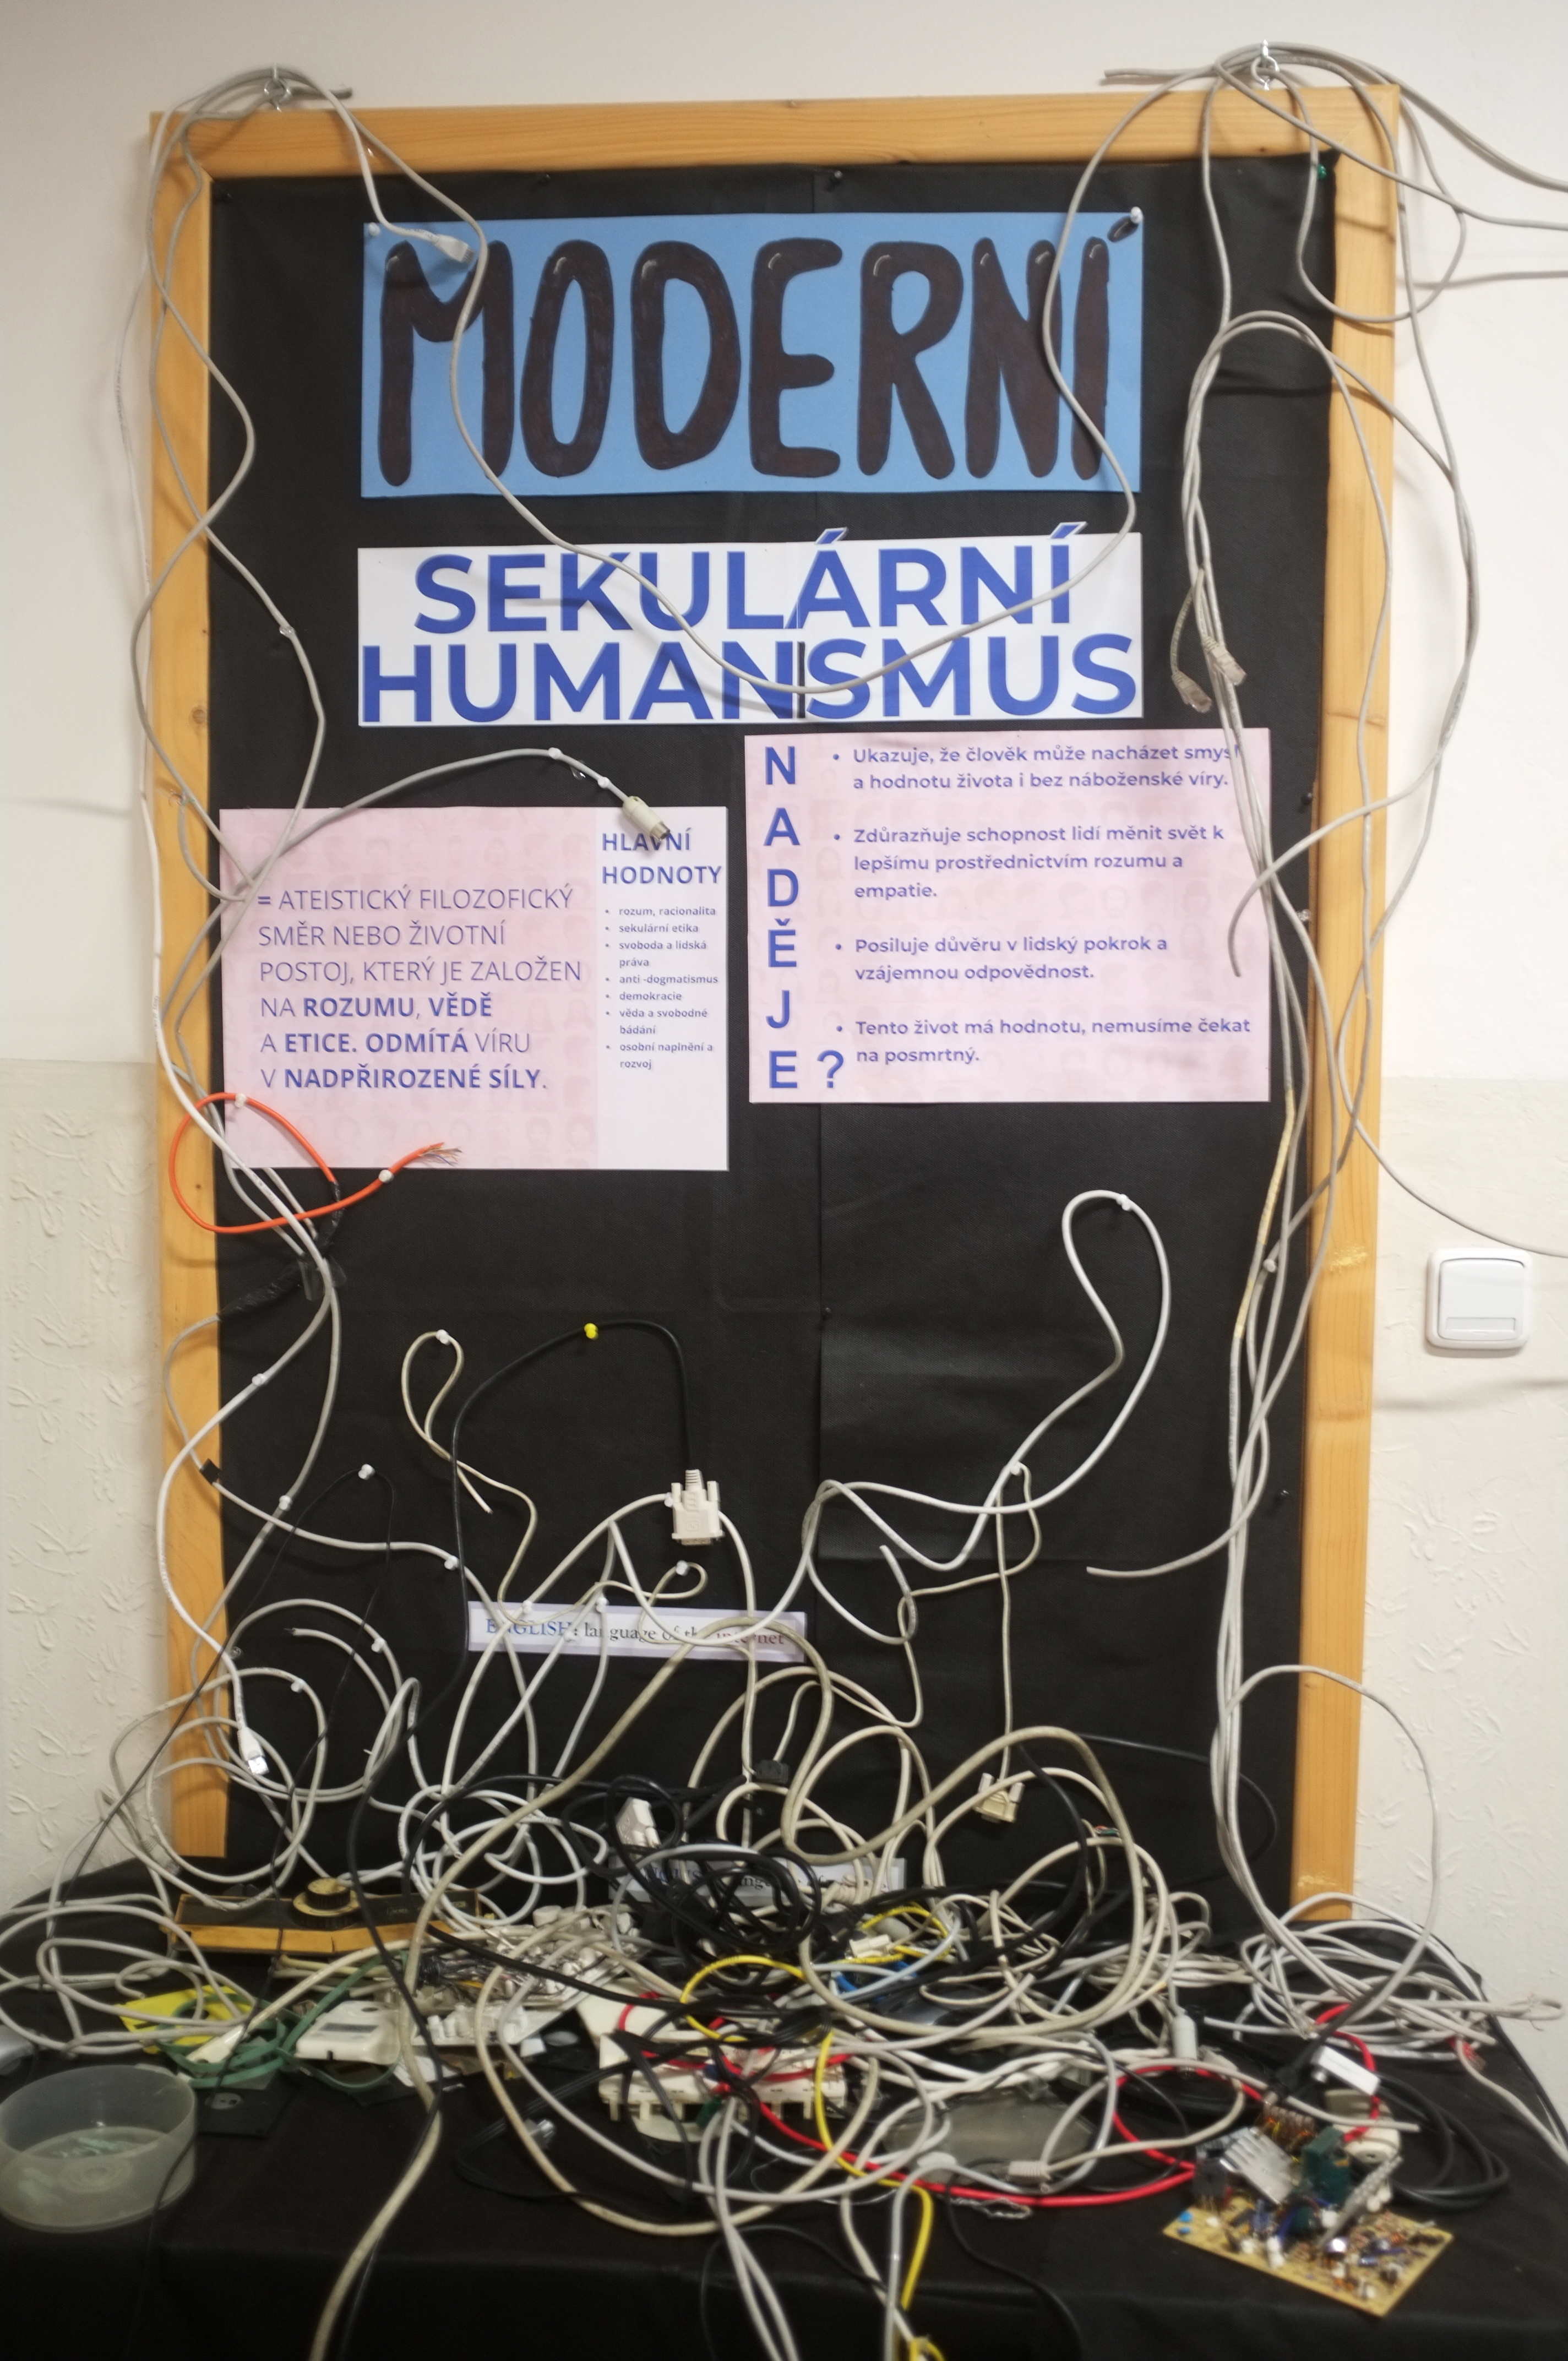 MODERNÍ
SEKULÁRNÍ
HUMANSMUS
= ATEISTICKÝ FILOZOFICKÝ
SMĚR NEBO ŽIVOTNÍ
POSTOJ, KTERÝ JE ZALOŽEN
NA ROZUMU, VĚDĚ
A ETICE. ODMÍTÁ VÍRU
V NADPŘIROZENÉ SÍLY.
HLAVNÍ
HODNOTY
• rozum, racionalita
• sekulární etika
• svoboda a lidská
práva
• anti -dogmatismus
• demokracie
• věda a svobodné
bádání
• osobní naplnění a
rozvoj
NADĚJE?
• Ukazuje, že člověk může nacházet smysl
a hodnotu života i bez náboženské víry.
• Zdůrazňuje schopnost lidí měnit svět k
lepšímu prostřednictvím rozumu a
empatie.
• Posiluje důvěru v lidský pokrok a
vzájemnou odpovědnost.
• Tento život má hodnotu, nemusíme čekat
na posmrtný.
ENGLISH: language of the internet